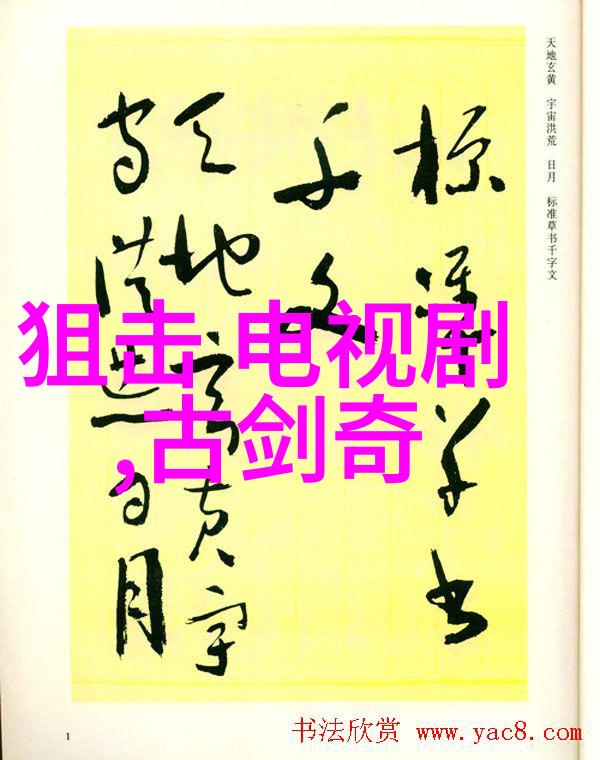 天地玄黄 宇宙洪荒 日月 标准草书千字文
标准草书
千文
天地玄黄宇
宙洪荒日月
狙击 电视剧
,古剑奇
1
书法欣赏 www.yac8.com